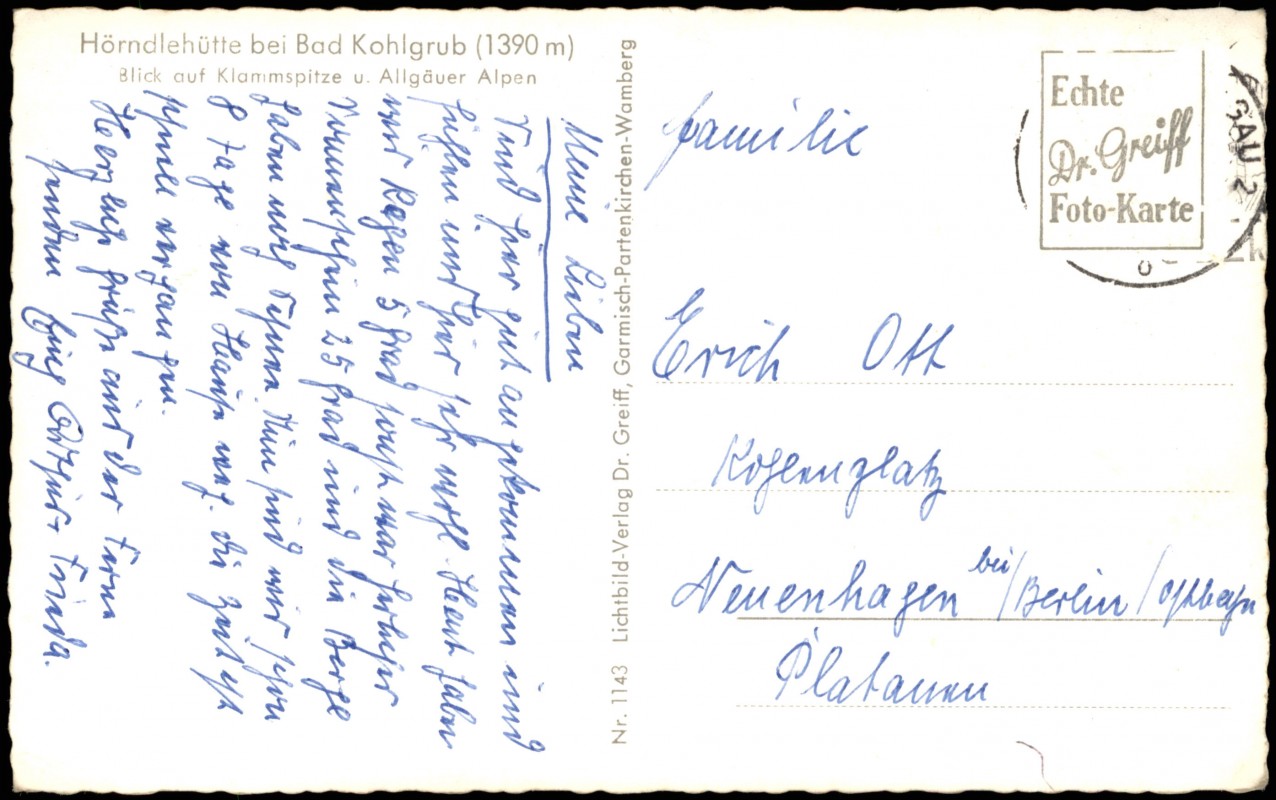 Hörndlehütte bei Bad Kohlgrub (1390 m)
Blick auf Klammspitze u. Allgäuer Alpen
Meine Lieben
Sind hier gut angekommen und
fühlen uns hier sehr wohl. Heut haben
wir Regen 5 Grad sonst war hier
Sonnenschein 25 Grad und die Berge
haben noch Schnee. Nun sind wir schon
8 Tage von Hause weg. die Zeit ist
schnell vergangen.
Herzliche Grüße aus der Ferne
senden Frieda.
Nr. 1143 Lichtbild-Verlag Dr. Greiff, Garmisch-Partenkirchen-Wamberg
Echte
Dr. Greiff
Foto-Karte
GAU 2
Familie
Erich Ott
Kohlenplatz
Neuenhagen bei / Berlin / Ostbahn
Platanen